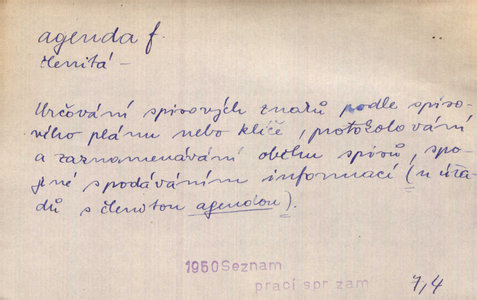 agenda f.
členitá –
Určování spisových znaků podle spiso-
vého plánu nebo klíče, protokolování
a zaznamenávání oběhu spisů, spo-
jené s podáváním informací (u úřa-
dů s členitou agendou).
1950 Seznam
prací spr zam
7,4